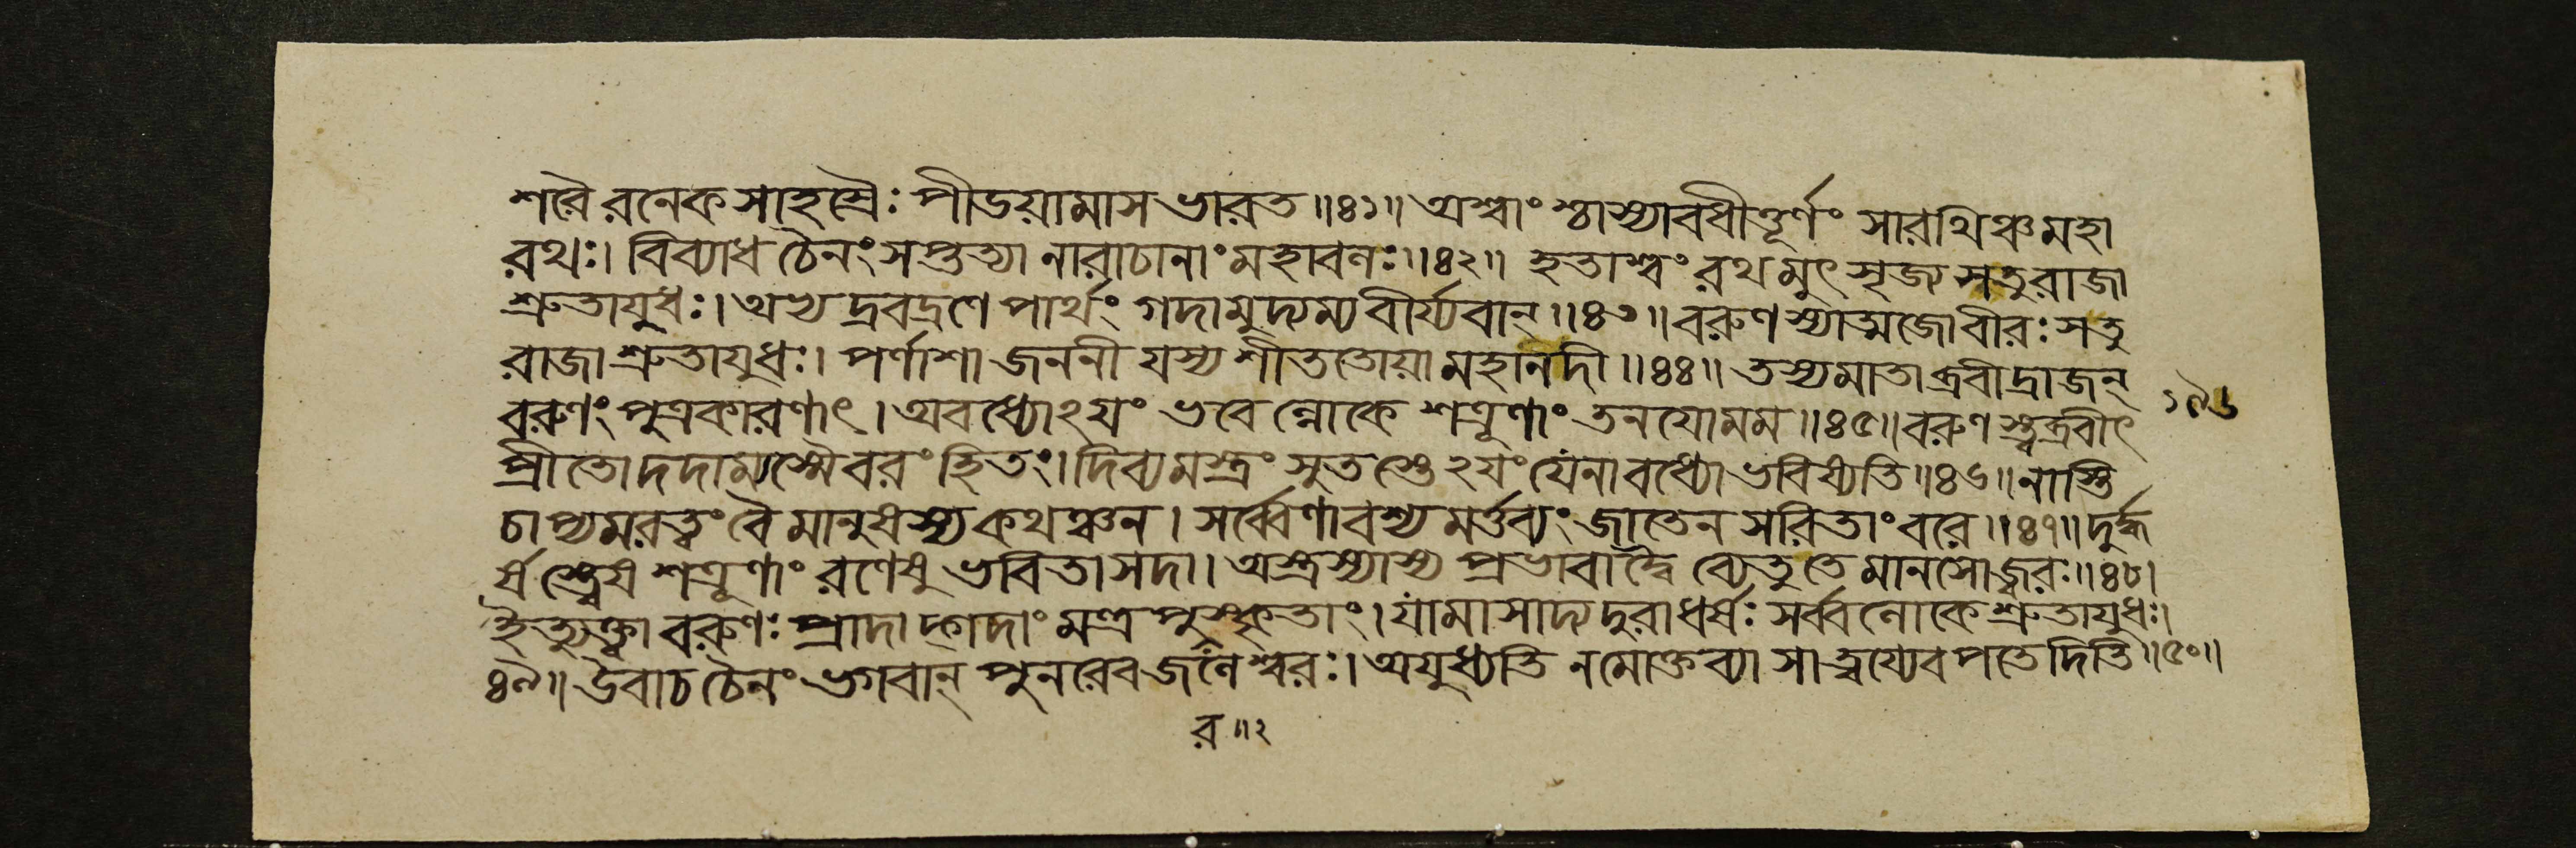 শরৈরনেকসাহস্রৈঃ পীডয়ামাস ভারত ॥৪১॥ অশ্বাংশ্চাস্যাবধীত্তূর্ণং সারথিঞ্চ মহা
রথঃ। বিব্যাধ চৈনং সপ্তত্যা নারাচানাং মহাবলঃ ॥৪২॥ হতাশ্বং রথমুৎসৃজ্য সতু রাজা
শ্রুতাযুধঃ। অভ্যদ্রবদ্রণে পার্থং গদামুদ্যম্য বীর্য্যবান্ ॥৪৩॥ বরুণস্যাত্মজো বীরঃ সতু
রাজা শ্রুতাযুধঃ। পর্ণাশা জননী যস্য শীততোয়া মহানদী ॥৪৪॥ তস্য মাতাব্রবীদ্রাজন্
বরুণং পুত্রকারণাৎ। অবধ্যোঽযং ভবেল্লোকে শত্রূণাং তনযো মম ॥৪৫॥ বরুণস্ত্বব্রবীৎ
১৯৬
প্রীতো দদাম্যস্মৈ বরং হিতং। দিব্যমস্ত্রং সুতস্তেঽযং যেনাবধ্যো ভবিষ্যতি ॥৪৬॥ নাস্তি
চাপ্যমরত্বং বৈ মানুষস্য কথঞ্চন। সর্ব্বেণাবশ্যমর্ত্তব্যং জাতেন সরিতাং বরে ॥৪৭॥ দুর্দ্ধ
র্ষস্ত্বেষ শত্রূণাং রণেষু ভবিতা সদা। অস্ত্রস্যাস্য প্রভাবাদ্বৈ ব্যেতু তে মানসো জ্বরঃ ॥৪৮।
ইত্যুক্ত্বা বরুণঃ প্রাদাদ্গদাং মন্ত্রপুস্কৃতাং। যামাসাদ্য দুরাধর্ষঃ সর্ব্বলোকে শ্রুতাযুধঃ।
৪৯॥ উবাচ চৈনং ভগবান্ পুনরেব জলেশ্বরঃ। অযুধ্যতি ন মোক্তব্যা সা ত্বয্যেব পতেদিতি ॥৫০॥
র ॥২